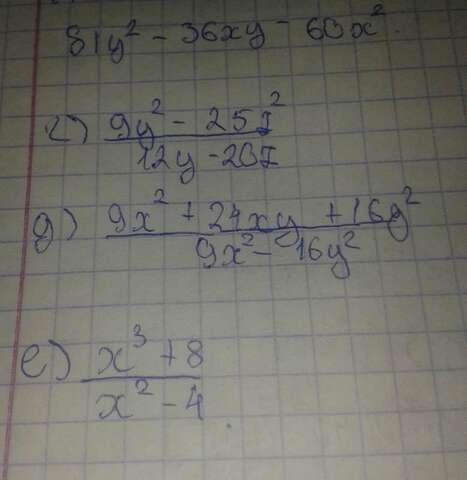 81y² - 36xy - 60x².
г) 9y² - 25z²
12y - 20z
д) 9x² + 24xy + 16y²
9x² - 16y²
е) x³ + 8
x² - 4.